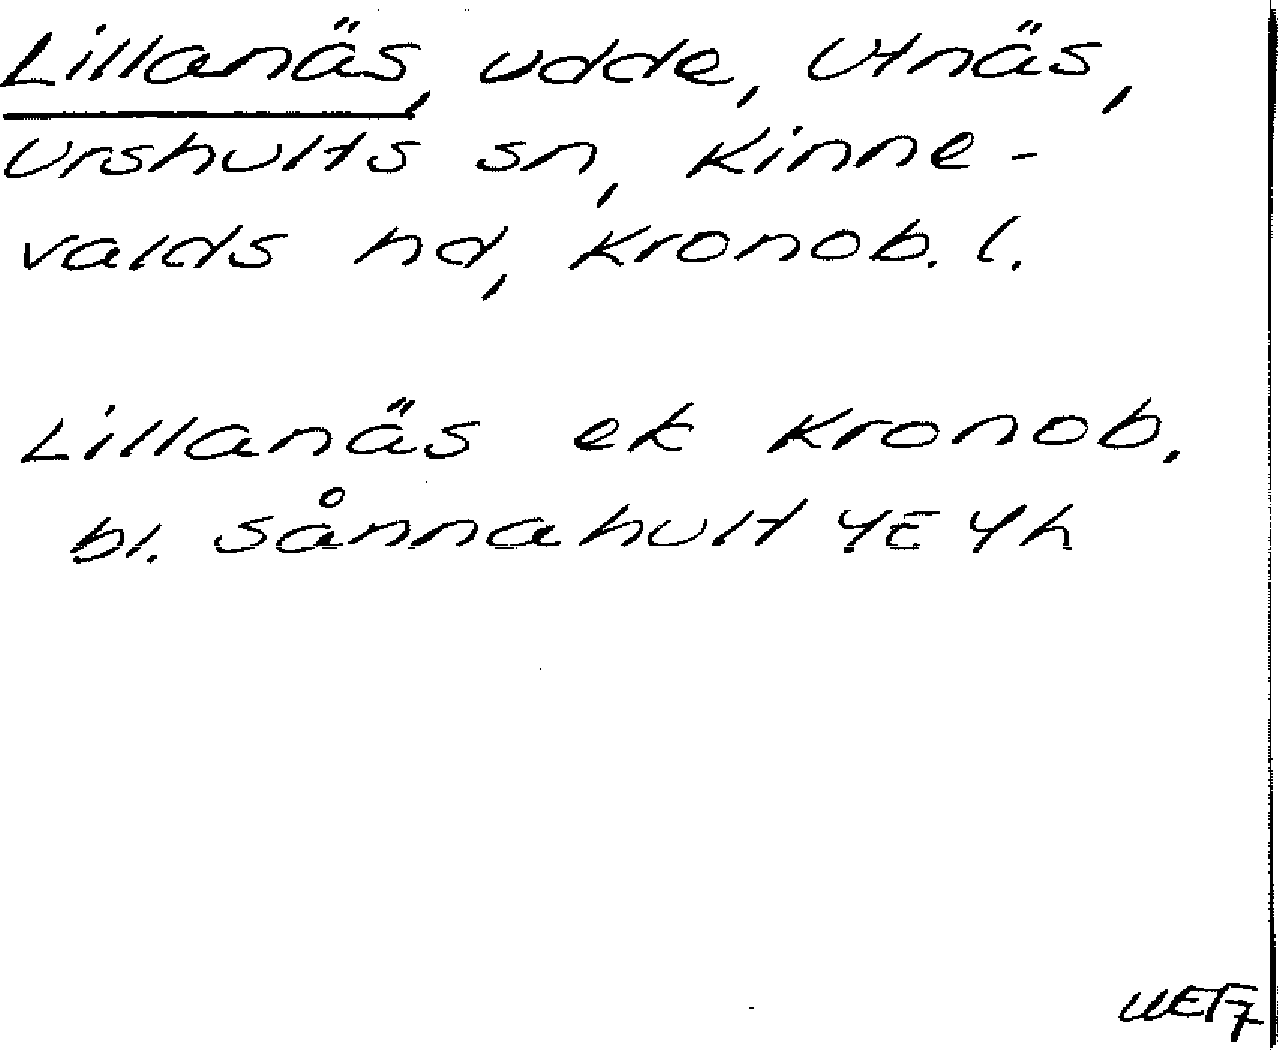 Lillanäs, udde, Utnäs,
Urshults sn, Kinne-
valds hd, Kronob. l.
Lillanäs ek Kronob.
bl. Sånnahult 4E 4h